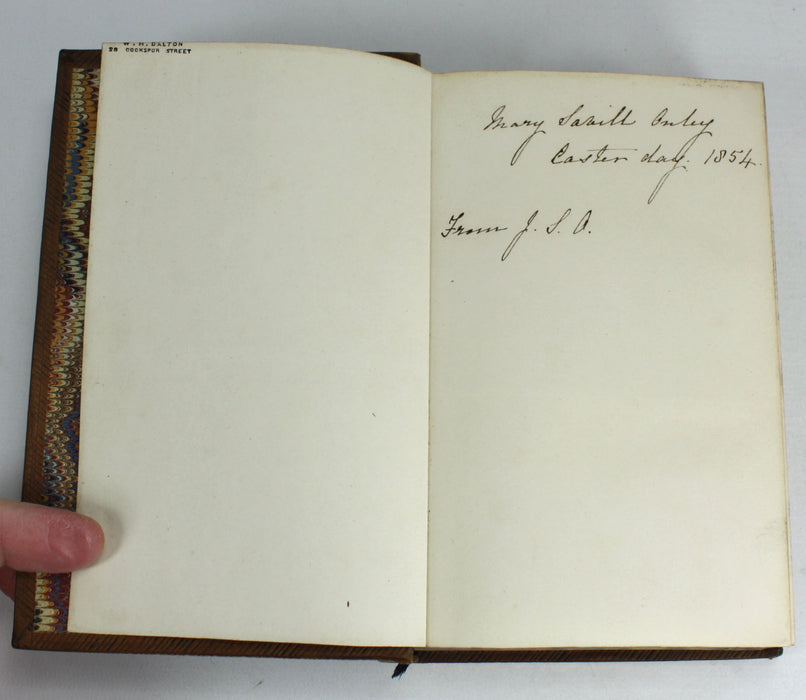 W. H. DALTON
28 COCKSPUR STREET
Mary Savill Onley
Easter day. 1854.
From J. S. O.